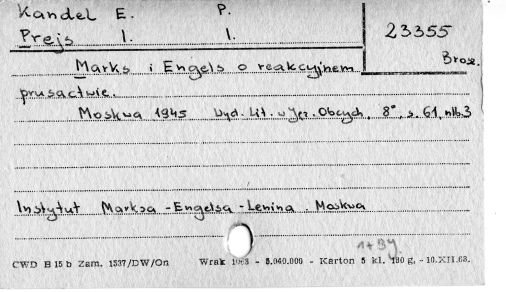 Kandel E. P.
Prejs I. I.
23355
Brosz.
Marks i Engels o reakcyjnem
prusactwie.
Moskwa 1945 Wyd. Lit. w Jęz. Obcych, 8°, s. 61, nlb. 3
Instytut Marksa-Engelsa-Lenina. Moskwa
CWD B 15 b Zam. 1537/DW/On Wrak 1963 - 5.040.000 - Karton 5 kl. 180 g. - 10.XII.63.